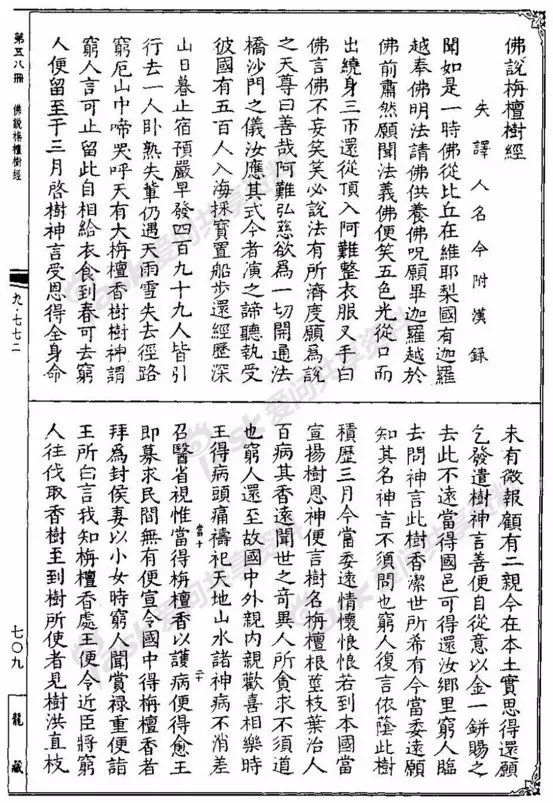 佛說栴檀樹經
失譯人名今附漢錄
聞如是一時佛從比丘在維耶梨國有迦羅
越奉佛明法請佛供養佛呪願畢迦羅越於
佛前肅然願聞法義佛便笑五色光從口而
出繞身三帀還從頂入阿難整衣服叉手白
佛言佛不妄笑笑必說法有所濟度願爲說
之天尊曰善哉阿難弘慈欲爲一切開通法
橋沙門之儀汝應其式今者演之諦聽執受
彼國有五百人入海採寶置船步還經歷深
山日暮止宿預嚴早發四百九十九人皆引
行去一人卧熟失輩仍遇天雨雪失去徑路
窮厄山中啼哭呼天有大栴檀香樹樹神謂
窮人言可止留此自相給衣食到春可去窮
人便留至于三月啓樹神言受恩得全身命
第五八冊
佛說栴檀樹經
九·七七二
未有微報顧有二親今在本土實思得還願
乞發遣樹神言善便自從意以金一餅賜之
去此不遠當得國邑可得還汝鄉里窮人臨
去問神言此樹香潔世所希有今當委遠願
知其名神言不須問也窮人復言依蔭此樹
積歷三月今當委遠情懷悢悢若到本國當
宣揚樹恩神便言樹名栴檀根莖枝葉治人
百病其香遠聞世之奇異人所貪求不須道
也窮人還至故國中外親內親歡喜相樂時
王得病頭痛禱祀天地山水諸神病不消差
召醫省視惟當得栴檀香以護病便得愈王
即募求民間無有便宣令國中得栴檀香者
拜爲封侯妻以小女時窮人聞賞祿重便詣
王所白言我知栴檀香處王便令近臣將窮
人往伐取香樹至到樹所使者見樹洪直枝
七〇九
龍藏